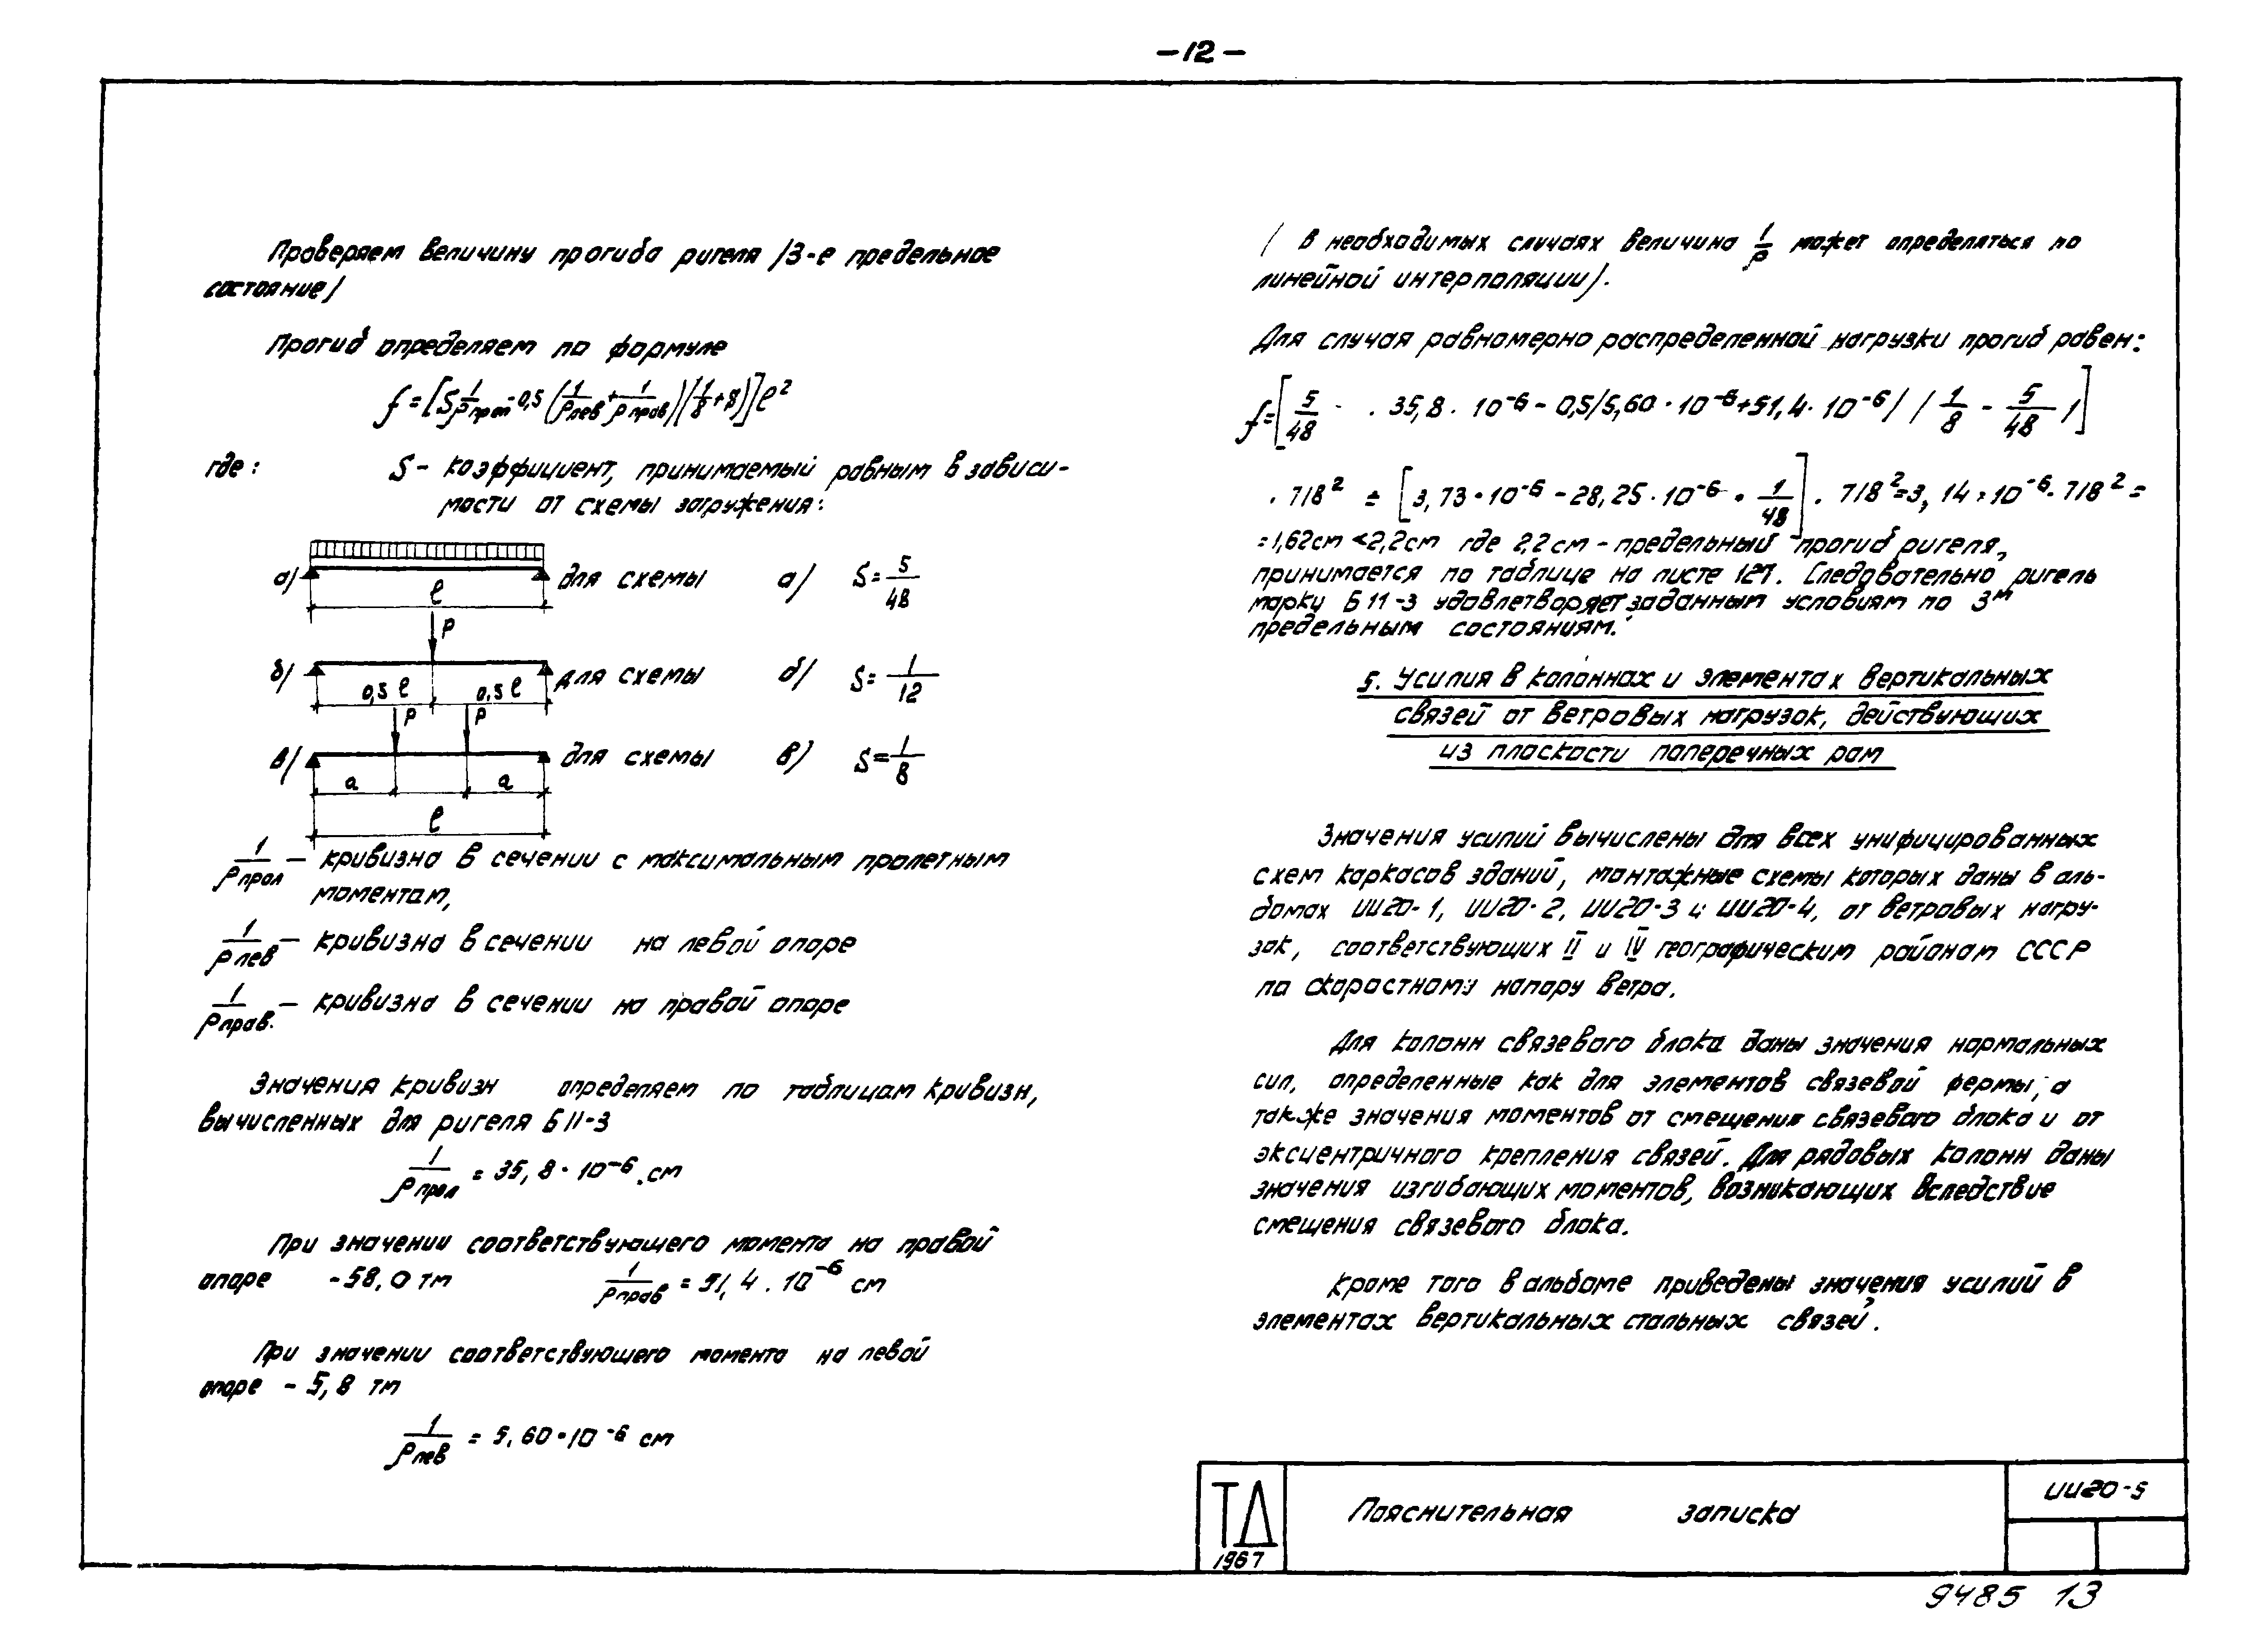 -12-
Проверяем величину прогиба ригеля /3-е предельное
состояние/
Прогиб определяем по формуле
f = [S 1/ρпрол - 0,5 (1/ρлев + 1/ρправ)(1/8 + 8)] ℓ²
где: S - коэффициент, принимаемый равным в зависи-
мости от схемы загружения:
а/ ℓ для схемы а/ S = 5/48
P
б/ 0,5 ℓ 0,5 ℓ для схемы б/ S = 1/12
P P
в/ а а для схемы в/ S = 1/8
ℓ
1/ρпрол — кривизна в сечении с максимальным пролетным
моментам,
1/ρлев — кривизна в сечении на левой опоре
1/ρправ. — кривизна в сечении на правой опоре
Значения кривизн определяем по таблицам кривизн,
вычисленных для ригеля Б11-3
1/ρпрол = 35,8 · 10⁻⁶ .см
При значении соответствующего момента на правой
опоре -58,0 тм 1/ρправ = 51,4 . 10⁻⁶ см
При значении соответствующего момента на левой
опоре - 5,8 тм
1/ρлев = 5,60 · 10⁻⁶ см
/ В необходимых случаях величина 1/ρ может определяться по
линейной интерполяции/.
Для случая равномерно распределенной нагрузки прогиб равен:
f = [5/48 · 35,8 · 10⁻⁶ - 0,5/5,60 · 10⁻⁶ + 51,4 · 10⁻⁶/ / 1/8 - 5/48 /]
· 718² = [3,73 · 10⁻⁶ - 28,25 · 10⁻⁶ · 1/48] · 718² = 3,14 · 10⁻⁶ · 718² =
= 1,62см < 2,2см где 2,2см - предельный прогиб ригеля,
принимается по таблице на листе 127. Следовательно ригель
марки Б11-3 удовлетворяет заданным условиям по 3м
предельным состояниям.
5. Усилия в колоннах и элементах вертикальных
связей от ветровых нагрузок, действующих
из плоскости поперечных рам
Значения усилий вычислены для всех унифицированных
схем каркасов зданий, монтажные схемы которых даны в аль-
бомах ИИ20-1, ИИ20-2, ИИ20-3 и ИИ20-4, от ветровых нагру-
зок, соответствующих II и IV географическим районам СССР
по скоростному напору ветра.
Для колонн связевого блока даны значения нормальных
сил, определенные как для элементов связевой фермы, а
также значения моментов от смещения связевого блока и от
эксцентричного крепления связей. Для рядовых колонн даны
значения изгибающих моментов, возникающих вследствие
смещения связевого блока.
Кроме того в альбоме приведены значения усилий в
элементах вертикальных стальных связей.
ТД
1967
Пояснительная записка
ИИ20-5
9485 13